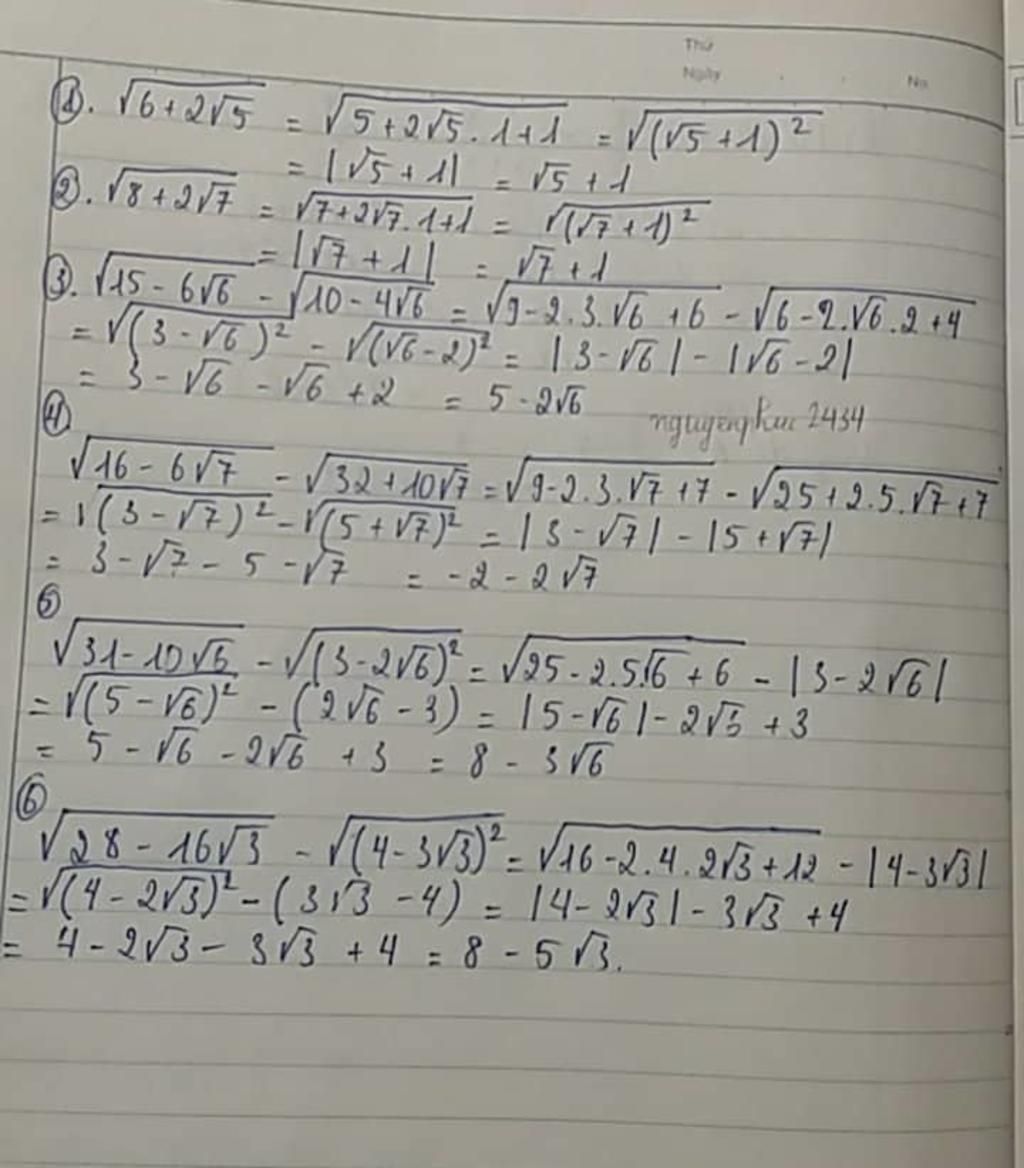 Thứ
Ngày No
①. √(6+2√5) = √(5+2√5.1+1) = √((√5+1)²)
= |√5+1| = √5+1
②. √(8+2√7) = √(7+2√7.1+1) = √((√7+1)²)
= |√7+1| = √7+1
③. √(15-6√6) - √(10-4√6) = √(9-2.3.√6+6) - √(6-2.√6.2+4)
= √((3-√6)²) - √((√6-2)²) = |3-√6| - |√6-2|
= 3-√6-√6+2 = 5-2√6
④
√(16-6√7) - √(32+10√7) = √(9-2.3.√7+7) - √(25+2.5.√7+7)
= √((3-√7)²) - √((5+√7)²) = |3-√7| - |5+√7|
= 3-√7-5-√7 = -2-2√7
⑤
√(31-10√6) - √((3-2√6)²) = √(25-2.5.√6+6) - |3-2√6|
= √((5-√6)²) - (2√6-3) = |5-√6| - 2√6+3
= 5-√6-2√6+3 = 8-3√6
⑥
√(28-16√3) - √((4-3√3)²) = √(16-2.4.2√3+12) - |4-3√3|
= √((4-2√3)²) - (3√3-4) = |4-2√3| - 3√3+4
= 4-2√3-3√3+4 = 8-5√3.